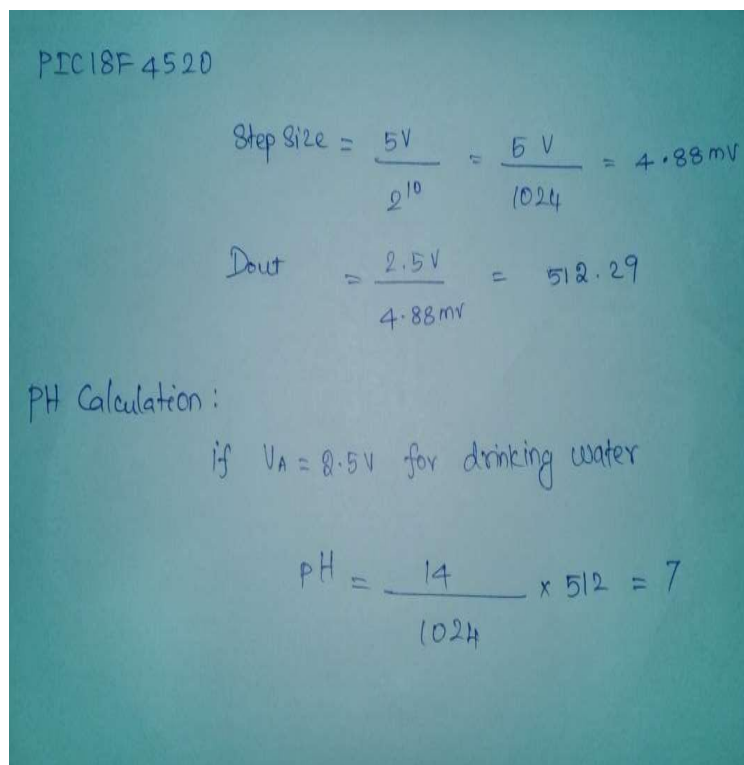 PIC18F4520
Step Size = 5V / 2^10 = 5 V / 1024 = 4.88 mV
Dout = 2.5V / 4.88mV = 512.29
PH Calculation :
if VA = 2.5V for drinking water
PH = 14 / 1024 x 512 = 7